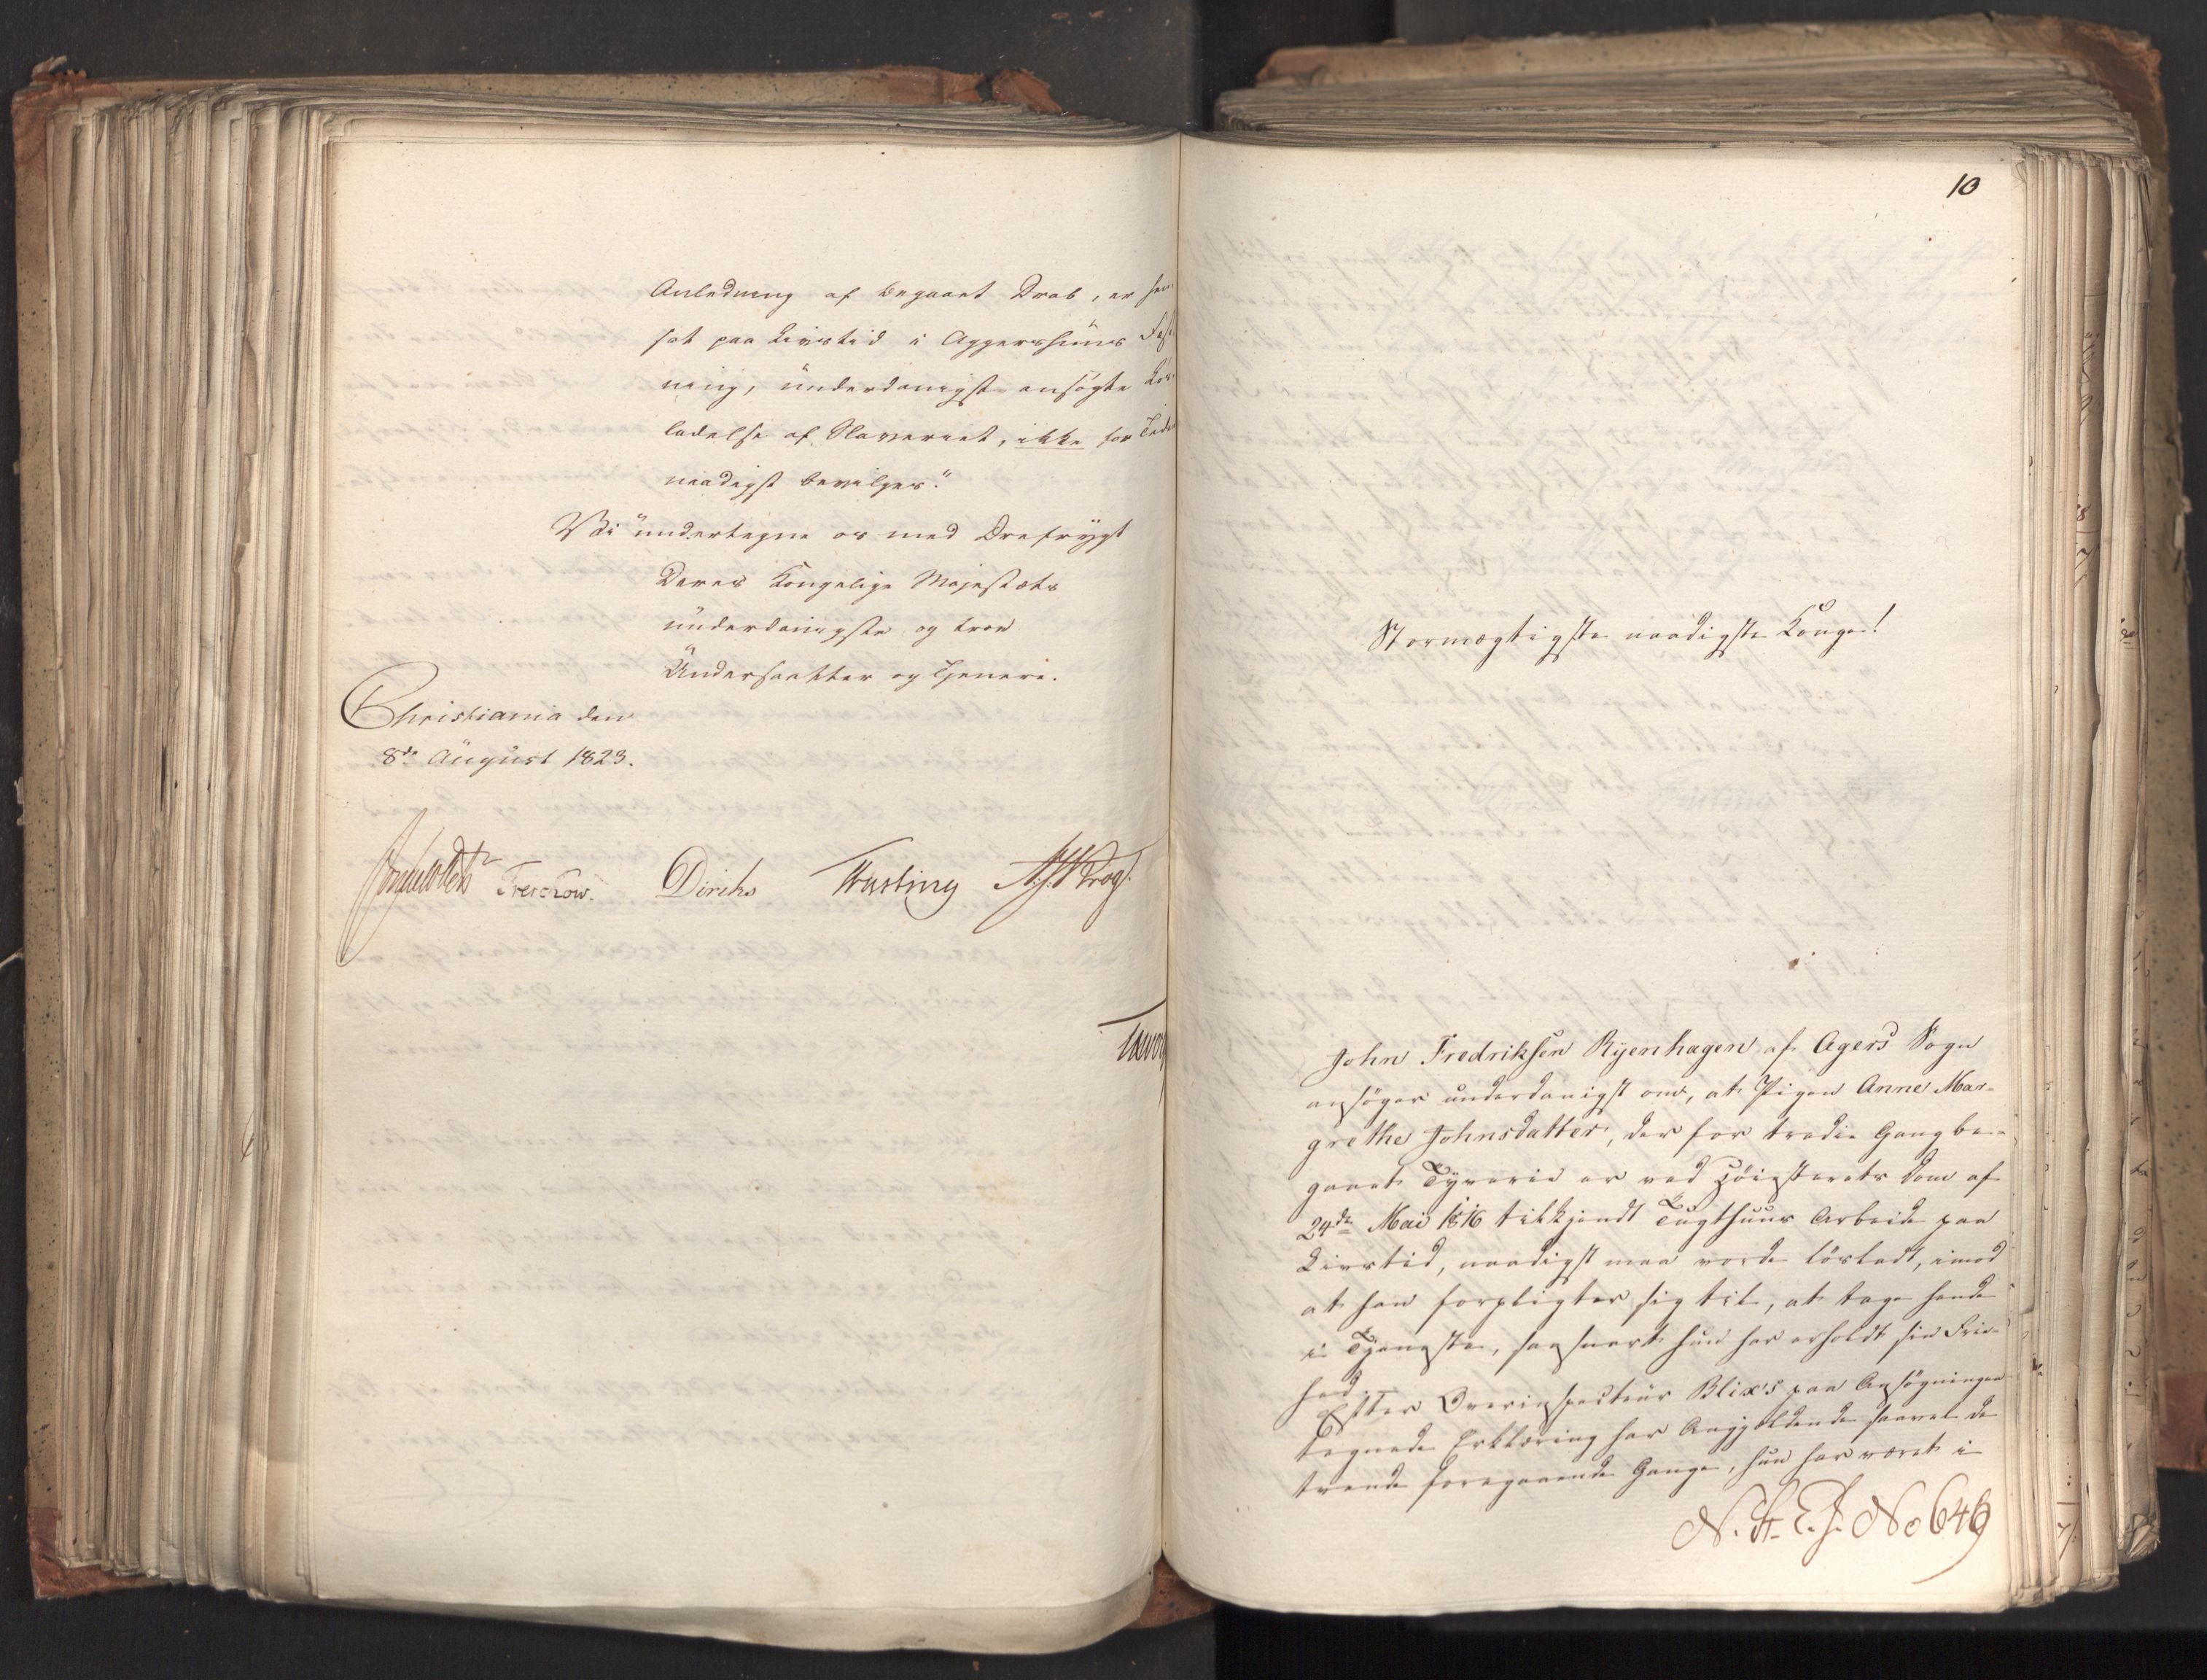 Anledning af begaaet Drab, er hen-
sat paa Livstid i Aggershuus Fæst-
ning, underdanigst ansøgte Løs-
ladelse af Slaveriet, ikke for Tiden
naadigst bevilges."
Vi undertegne os med Ærefrygt
Deres Kongelige Majestæts
underdanigste og troe
Undersaatter og Tjenere.
Christiania den
8de August 1823.
Treschow. Diriks Krog.
10
Stormægtigste naadigste Konge!
John Fredriksen Ryenhagen af Agers Sogn
ansøger underdanigst om, at Pigen Anne Mar-
grethe Johnsdatter, der for tredie Gang be-
gaaet Tyverie er ved Høiesterets Dom af
24de Mai 1816 tilkjendt Tugthuus Arbeide paa
Livstid, naadigst maa vorde løsladt, imod
at han forpligter sig til, at tage hende
i Tjeneste, saasnart hun har erholdt sin Frie-
hed.
Efter Overinspecteur Blix's paa Ansøgningen
tegnede Erklæring har Angjældende saavel de
tvende foregaaende Gange, hun har været i
N. St. E. J. No 649